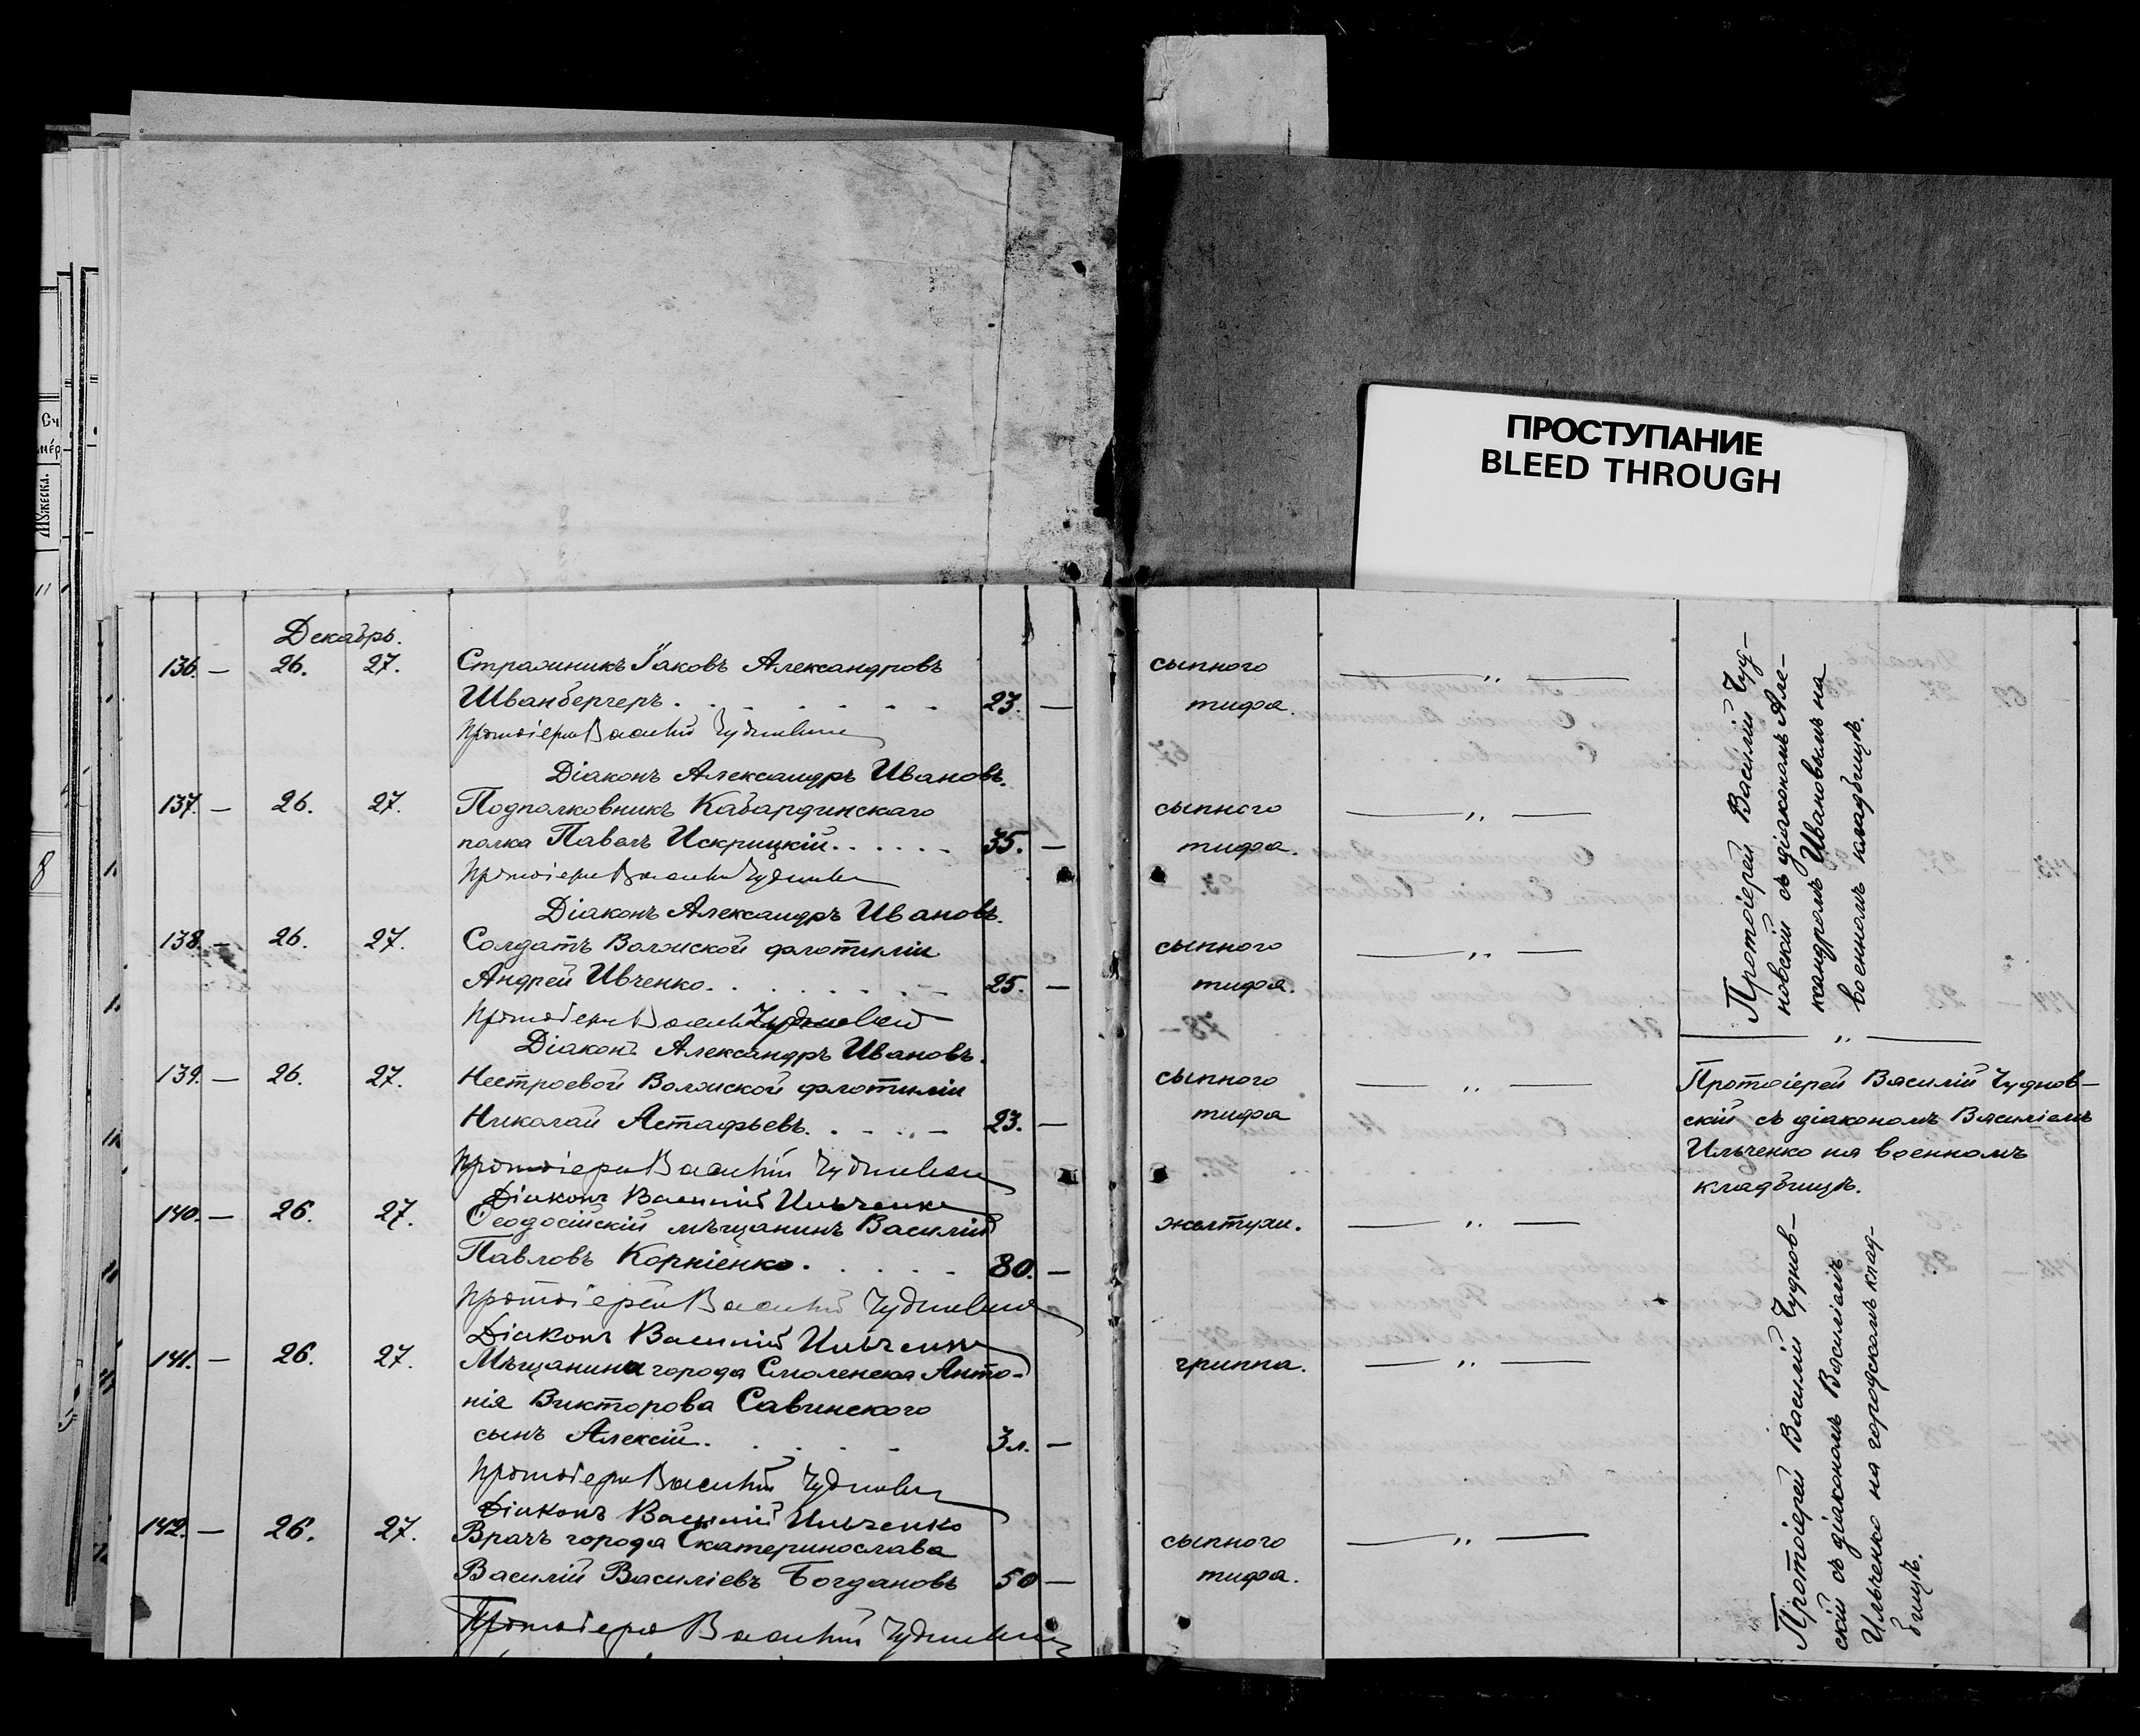 ПРОСТУПАНИЕ
BLEED THROUGH
Декабрь.
136. — 26. 27. Стражникъ Іаковъ Александровъ
Шванбергеръ. 23. — сыпного тифа. — „ —
Протоіерей Василій Чудновскій
Діаконъ Александръ Ивановъ.
137. — 26. 27. Подполковникъ Кабардинскаго
полка Павелъ Искрицкій. 35. — сыпного тифа. — „ —
Протоіерей Василій Чудновскій
Діаконъ Александръ Ивановъ.
138. — 26. 27. Солдатъ Волжской флотиліи
Андрей Ивченко. 25. — сыпного тифа. — „ —
Протоіерей Василій Чудновскій
Діаконъ Александръ Ивановъ.
Протоіерей Василій Чуд-
новскій съ діакономъ Але-
ксандромъ Ивановымъ на
военномъ кладбищѣ.
— „ —
139. — 26. 27. Нестроевой Волжской флотиліи
Николай Астафьевъ. 23. — сыпного тифа — „ —
Протоіерей Василій Чудновскій
Діаконъ Василій Ильченко
Протоіерей Василій Чуднов-
скій съ діакономъ Василіемъ
Ильченко на военномъ
кладбищѣ.
140. — 26. 27. Ѳеодосійскій мѣщанинъ Василій
Павловъ Корніенко. 80. — желтухи. — „ —
Протоіерей Василій Чудновскій
Діаконъ Василій Ильченко
141. — 26. 27. Мѣщанина города Смоленска Анто-
нія Викторова Савинского
сынъ Алексій. 3 л. — гриппа. — „ —
Протоіерей Василій Чудновскій
Діаконъ Василій Ильченко
142. — 26. 27. Врачъ города Екатеринослава
Василій Василіевъ Богдановъ 50 — сыпного тифа. — „ —
Протоіерей Василій Чудновскій
Протоіерей Василій Чуднов-
скій съ діакономъ Василіемъ
Ильченко на городскомъ клад-
бищѣ.